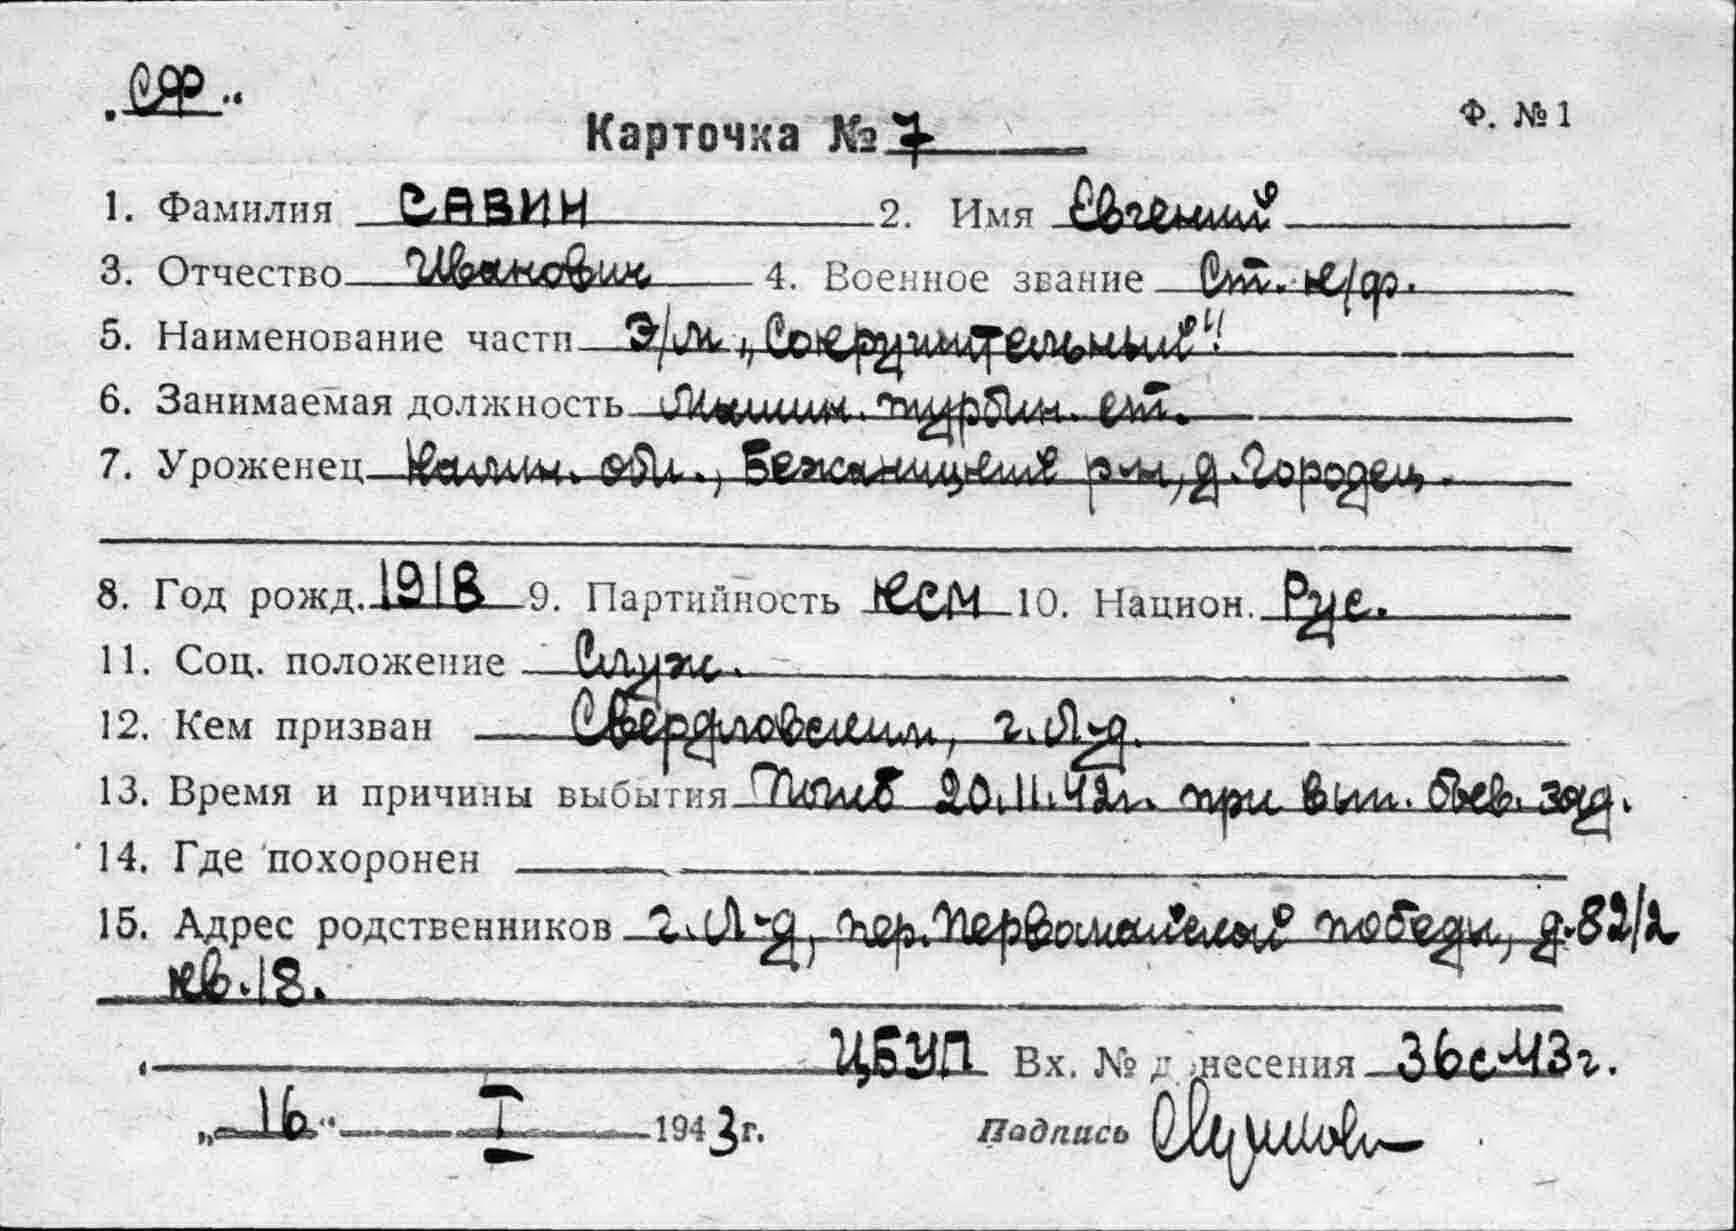 „СФ“
Ф. № 1
Карточка № 7
1. Фамилия САВИН 2. Имя Евгений
3. Отчество Иванович 4. Военное звание Ст. к/ф.
5. Наименование части Э/м „Сокрушительный“.
6. Занимаемая должность Машин. турбин. ст.
7. Уроженец Калин. обл., Бежаницкий р-н, д. Городец.
8. Год рожд. 1918 9. Партийность КСМ 10. Национ. Рус.
11. Соц. положение Служ.
12. Кем призван Свердловским, г. Л-д.
13. Время и причины выбытия Погиб 20.11.42г. при вып. боев. зад.
14. Где похоронен
15. Адрес родственников г. Л-д, пер. Первомайской победы, д. 82/2
кв. 18.
ЦБУП Вх. № донесения 36с 43г.
„16“ I 1943 г. Подпись